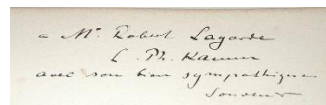 a Mr. Robert Lagarde
L. Ph. Kamm
avec son bien sympathique
souvenir